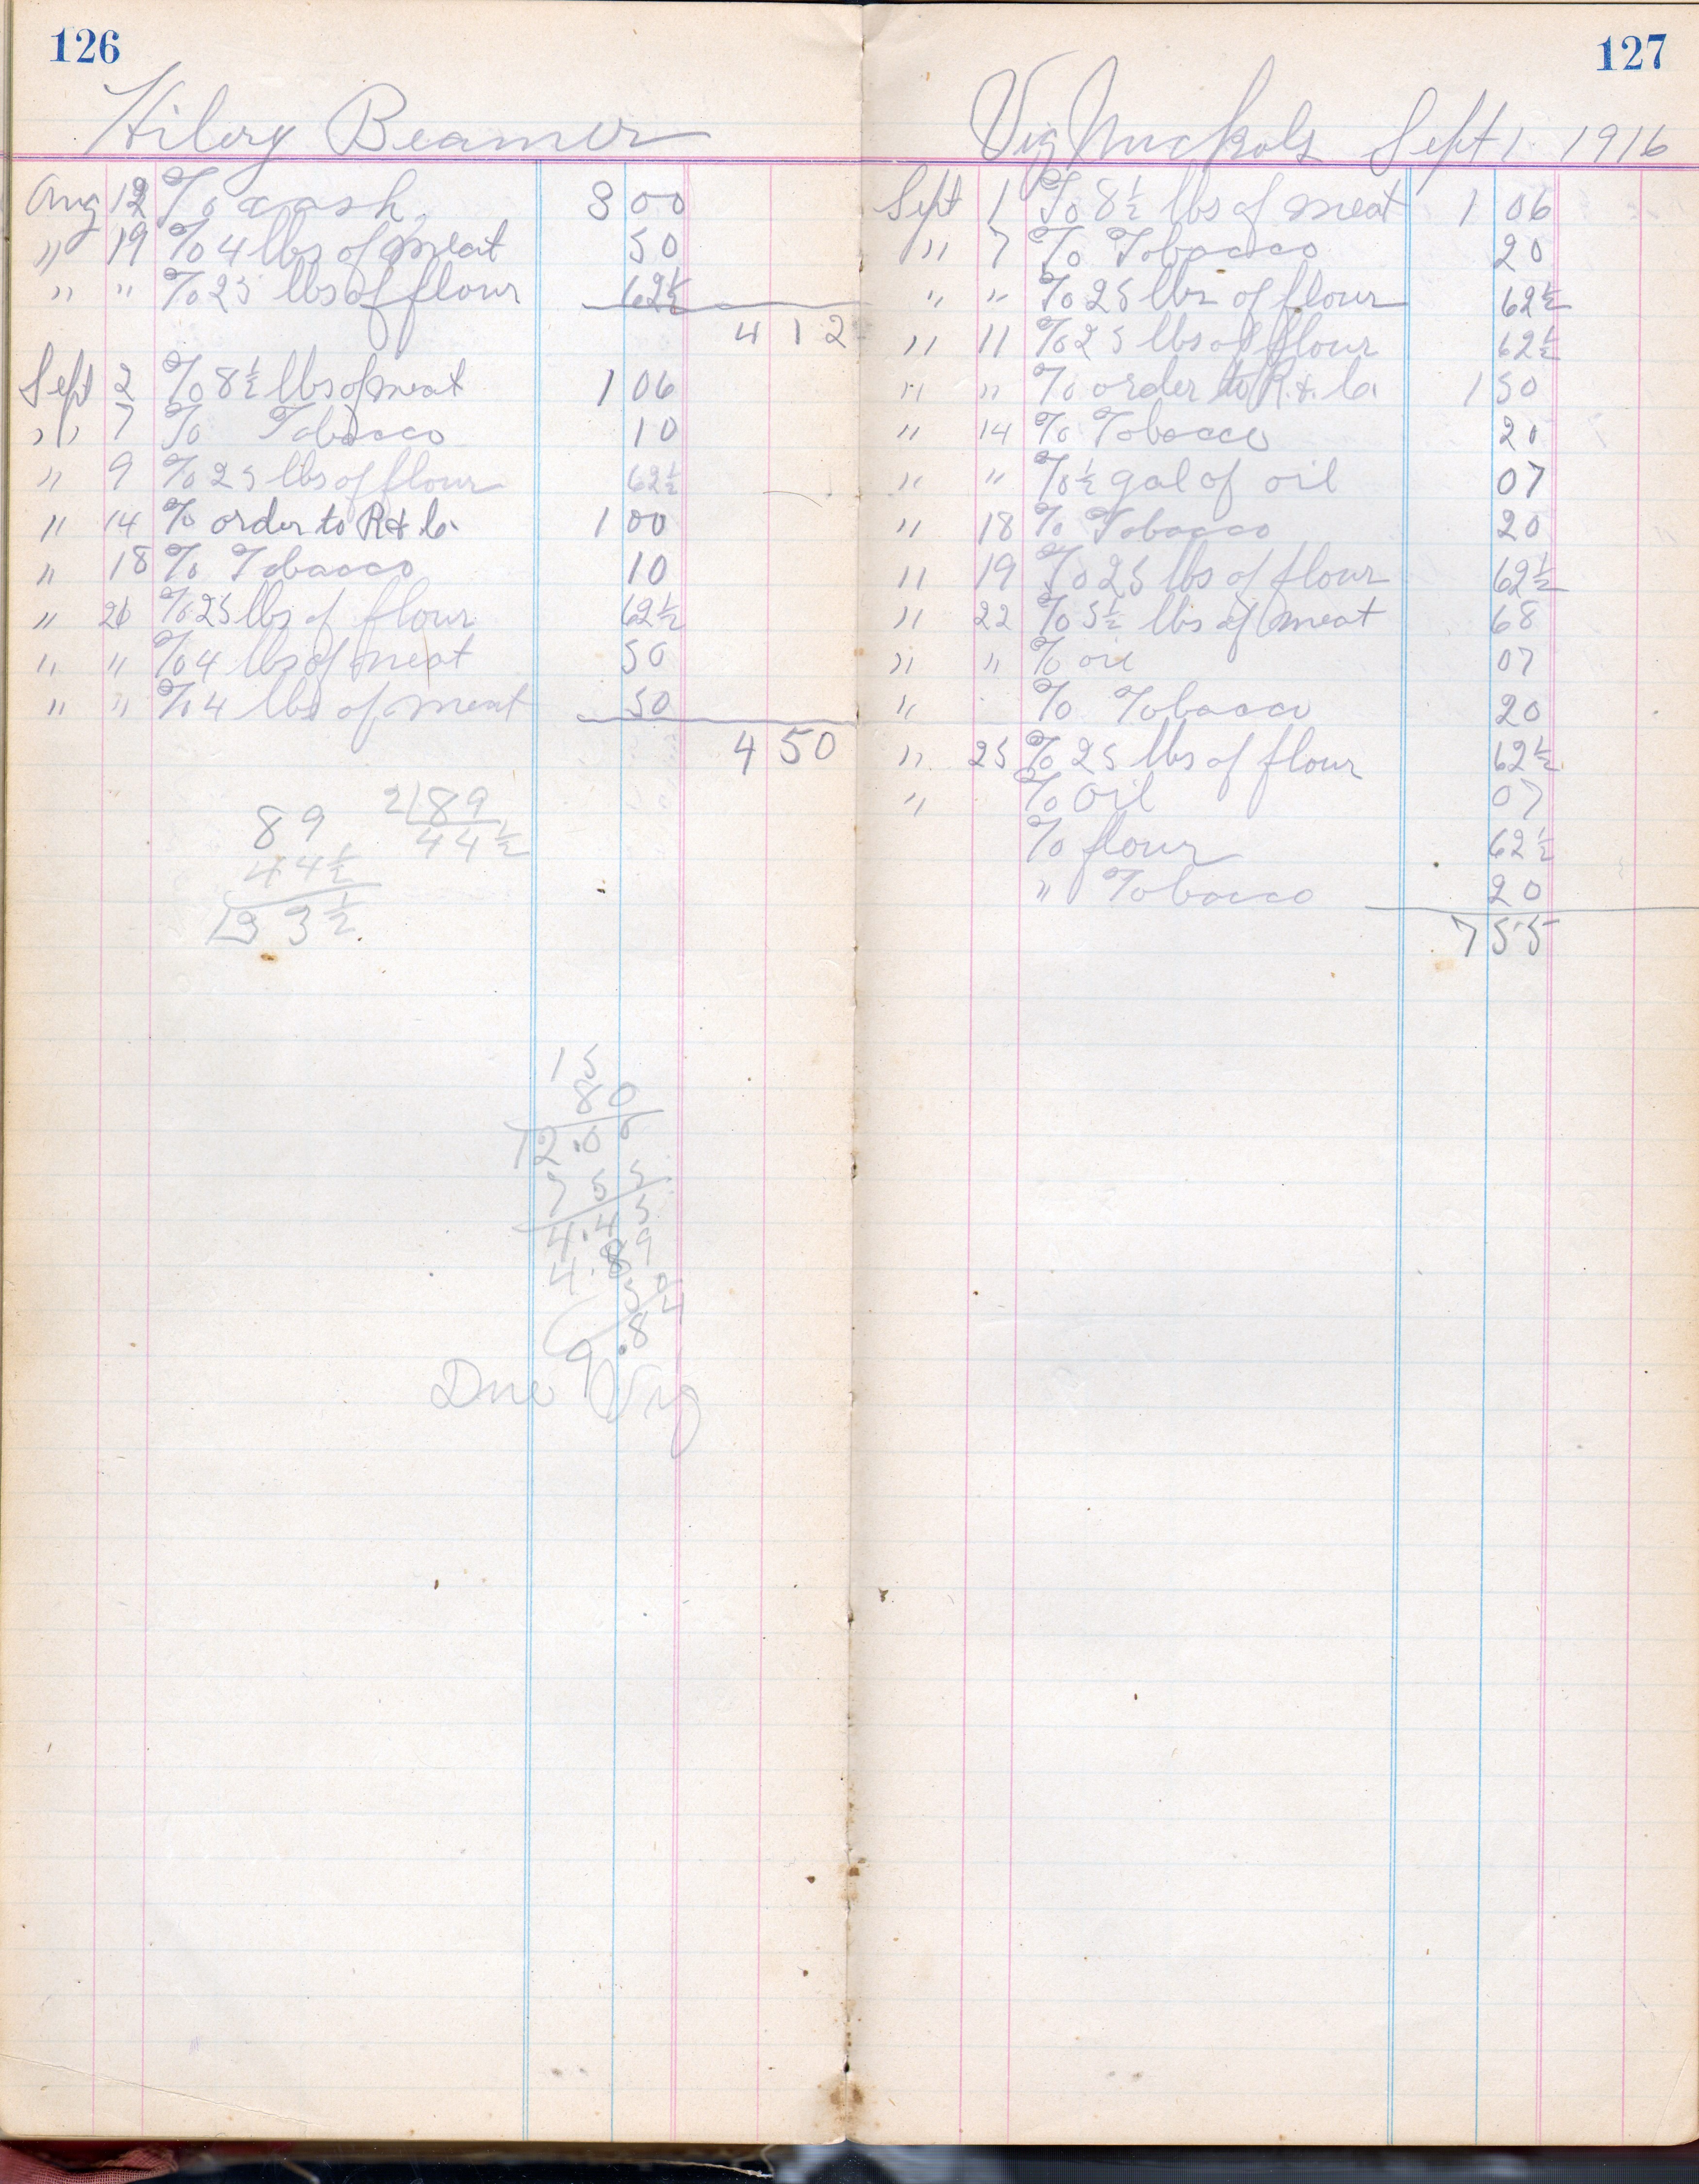 126
Hilery Beamer
Aug 12 To cash 3 00
" 19 To 4 lbs of meat 50
" " To 25 lbs of flour 62½
4 12
Sept 2 To 8½ lbs of meat 1 06
" 7 To Tobacco 10
" 9 To 25 lbs of flour 62½
" 14 To order to R & Co. 1 00
" 18 To Tobacco 10
" 26 To 25 lbs of flour 62½
" " To 4 lbs of meat 50
" " To 4 lbs of meat 50
4 50
89
44½
133½
2)89
44½
15
80
12.00
7 55
4.45
4.89
50
.8
9.
Due Vig
127
Vig Nuckols Sept 1 1916
Sept 1 To 8½ lbs of meat 1 06
" 7 To Tobacco 20
" " To 25 lbs of flour 62½
" 11 To 25 lbs of flour 62½
" " To order to R. & Co. 1 50
" 14 To Tobacco 20
" " To ½ gal of oil 07
" 18 To Tobacco 20
" 19 To 25 lbs of flour 62½
" 22 To 5½ lbs of meat 68
" " To oil 07
" To Tobacco 20
" 25 To 25 lbs of flour 62½
" To Oil 07
To flour 62½
" Tobacco 20
7 55